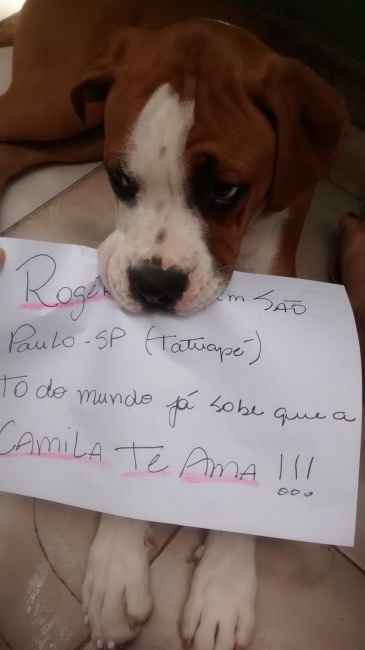 Rogér em SÃO
PAULO - SP (TATUAPÉ)
TO do mundo já sabe que a
CAMILA TE AMA !!!